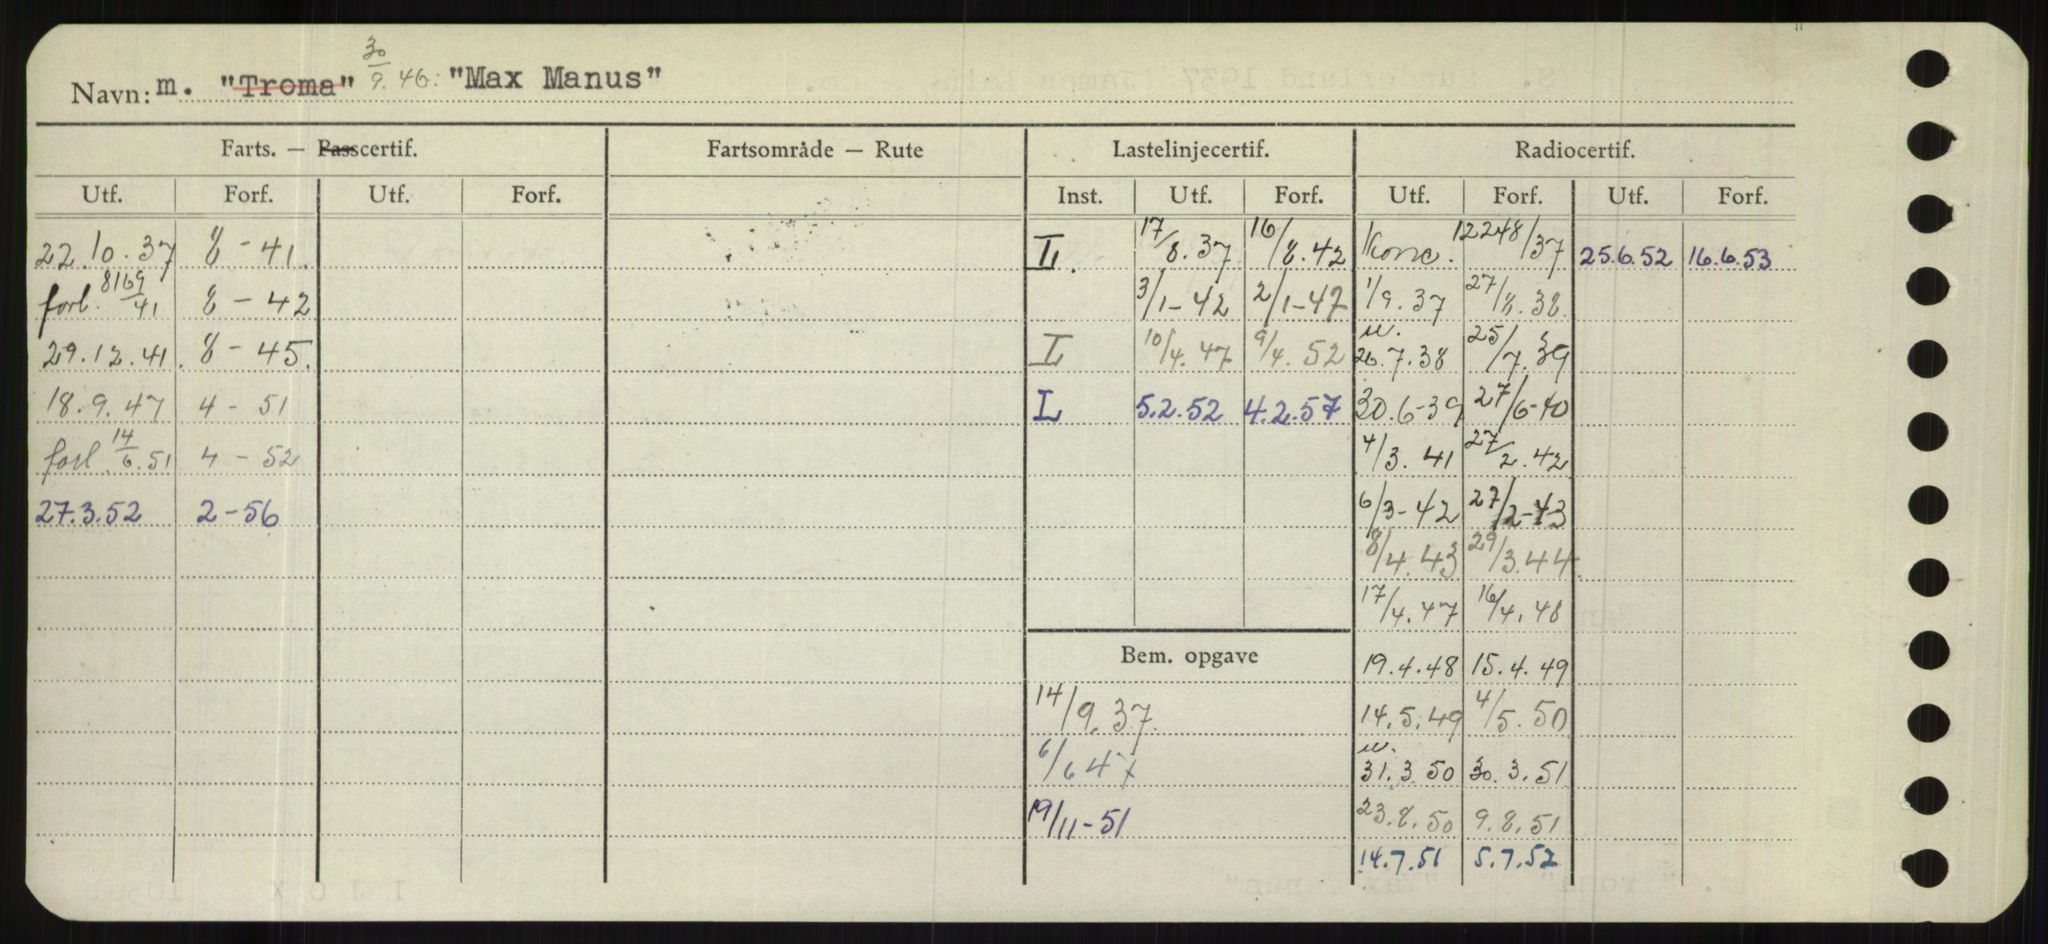 30
Navn: m. "Troma" 9. 46: "Max Manus"
Farts. — Passcertif. Fartsområde — Rute Lastelinjecertif. Radiocertif.
Utf. Forf. Utf. Forf. Inst. Utf. Forf. Utf. Forf. Utf. Forf.
22.10.37 8-41. L. 17/8.37 16/8.42 Konc. 12248/37 25.6.52 16.6.53
forl. 8169/41 8-42 3/1-42 2/1-47 1/9.37 27/8.38.
29.12.41. 8-45. L 10/4.47 9/4.52 m. 26.7.38 25/7.39
18.9.47 4-51 L 5.2.52 4.2.57 30.6-39 27/6-40
forl. 14/6.51 4-52 4/3.41 27/2.42
27.3.52 2-56 6/3-42 27/2-43
8/4.43 29/3.44
17/4.47 16/4.48
Bem. opgave 19.4.48 15.4.49
14/9.37. 14.5.49 4/5.50
6/6 47 m. 31.3.50 30.3.51
19/11-51 23.8.50 9.8.51
14.7.51 5.7.52